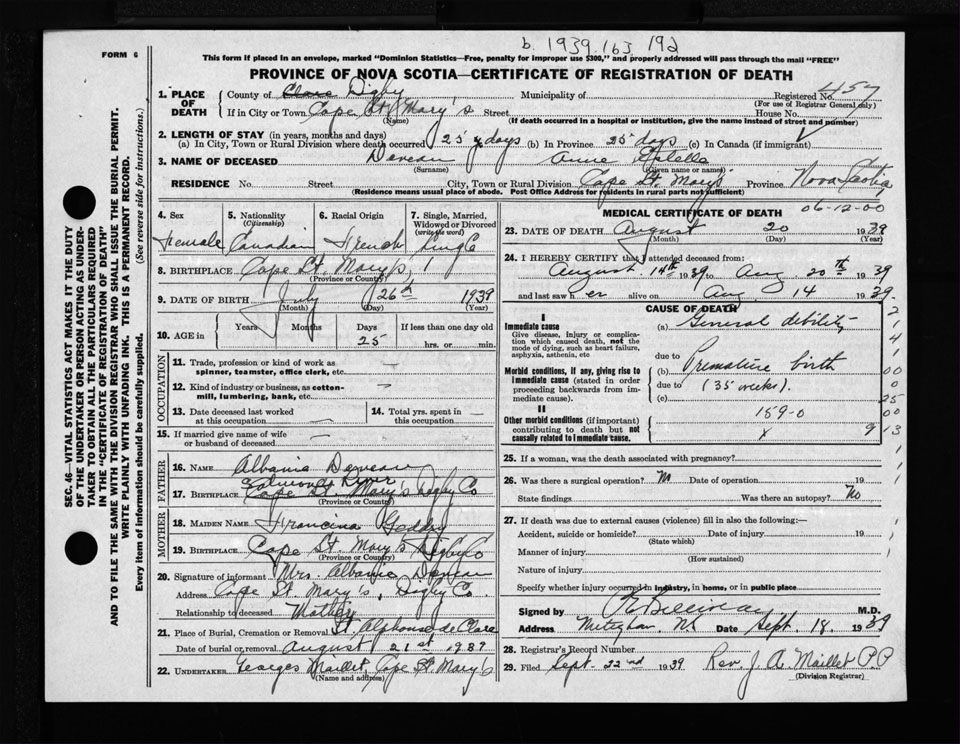 b. 1939.163 192
FORM 6
This form if placed in an envelope, marked "Dominion Statistics—Free, penalty for improper use $300," and properly addressed will pass through the mail "FREE"
PROVINCE OF NOVA SCOTIA—CERTIFICATE OF REGISTRATION OF DEATH
SEC. 46—VITAL STATISTICS ACT MAKES IT THE DUTY
OF THE UNDERTAKER OR PERSON ACTING AS UNDER-
TAKER TO OBTAIN ALL THE PARTICULARS REQUIRED
IN THE "CERTIFICATE OF REGISTRATION OF DEATH"
AND TO FILE THE SAME WITH THE DIVISION REGISTRAR WHO SHALL ISSUE THE BURIAL PERMIT.
WRITE PLAINLY WITH UNFADING INK. THIS IS A PERMANENT RECORD.
Every item of information should be carefully supplied. (See reverse side for instructions.)
1. PLACE OF DEATH
County of Clare Digby Municipality of Registered No. 457
(For use of Registrar General only)
If in City or Town Cape St Mary's Street House No.
(Name) (If death occurred in a hospital or institution, give the name instead of street and number)
2. LENGTH OF STAY (in years, months and days)
(a) In City, Town or Rural Division where death occurred 25 days (b) In Province 25 days (c) In Canada (if immigrant)
3. NAME OF DECEASED Deveau Anne
(Surname) (Given name or names)
RESIDENCE No. Street City, Town or Rural Division Cape St. Mary's Province Nova Scotia
(Residence means usual place of abode. Post Office Address for residents in rural parts not sufficient)
4. Sex 5. Nationality (Citizenship) 6. Racial Origin 7. Single, Married, Widowed or Divorced (write the word)
Female Canadian French Single
8. BIRTHPLACE Cape St. Mary's
(Province or Country)
9. DATE OF BIRTH July 26th 1939
(Month) (Day) (Year)
10. AGE in Years Months Days If less than one day old
25 hrs. or min.
OCCUPATION
11. Trade, profession or kind of work as spinner, teamster, office clerk, etc. —
12. Kind of industry or business, as cotton-mill, lumbering, bank, etc. —
13. Date deceased last worked at this occupation — 14. Total yrs. spent in this occupation —
15. If married give name of wife or husband of deceased —
FATHER
16. NAME Albanie Deveau
Salmon River
17. BIRTHPLACE Cape St. Mary's Digby Co
(Province or Country)
MOTHER
18. MAIDEN NAME Francina Geddry
19. BIRTHPLACE Cape St. Mary's Digby Co
(Province or Country)
20. Signature of informant Mrs. Albanie Deveau
Address Cape St. Mary's, Digby Co.
Relationship to deceased Mother
21. Place of Burial, Cremation or Removal St. Alphonse de Clare
Date of burial or removal August 21st 1939
22. UNDERTAKER Georges Maillet, Cape St. Mary's
(Name and address)
MEDICAL CERTIFICATE OF DEATH
06-12-00
23. DATE OF DEATH August 20 1939
(Month) (Day) (Year)
24. I HEREBY CERTIFY that I attended deceased from:
August 14th 1939 to Aug 20th 1939
and last saw her alive on Aug 14 1939.
CAUSE OF DEATH
I
Immediate cause (a) General debility
Give disease, injury or complication which caused death, not the mode of dying, such as heart failure, asphyxia, asthenia, etc
due to
Morbid conditions, if any, giving rise to immediate cause (stated in order proceeding backwards from immediate cause). (b) Premature birth
due to (35 weeks).
(c)
II
Other morbid conditions (if important) contributing to death but not causally related to immediate cause.
159-0
x 9
2
1
4
1
00
0
25
00
13
25. If a woman, was the death associated with pregnancy?
26. Was there a surgical operation? No Date of operation 19
State findings Was there an autopsy? No
27. If death was due to external causes (violence) fill in also the following:—
Accident, suicide or homicide? Date of injury 19
(State which)
Manner of injury
(How sustained)
Nature of injury
Specify whether injury occurred in industry, in home, or in public place
Signed by M.D.
Address Meteghan, NS Date Sept. 18. 1939
28. Registrar's Record Number
29. Filed Sept. 22nd 1939 Rev. J. A. Maillet PP
(Division Registrar)